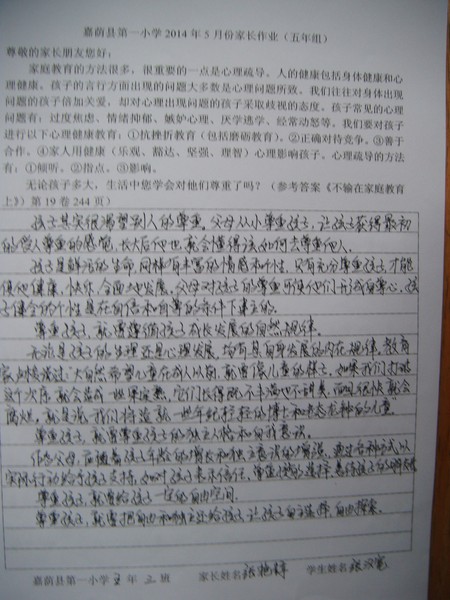 嘉荫县第一小学2014年5月份家长作业（五年组）
尊敬的家长朋友您好：
家庭教育的方法很多，很重要的一点是心理疏导。人的健康包括身体健康和心
理健康。孩子的言行方面出现的问题大多数是心理问题所致。我们往往对身体出现
问题的孩子倍加关爱，却对心理出现问题的孩子采取歧视的态度。孩子常见的心理
问题有：过度焦虑、情绪抑郁、嫉妒心理、厌学逃学、经常动怒等。我们要对孩子
进行以下心理健康教育：①抗挫折教育（包括磨砺教育）。②正确对待竞争。③善于
合作。④家人用健康（乐观、豁达、坚强、理智）心理影响孩子。心理疏导的方法
有：①倾听。②指点。③影响。
无论孩子多大，生活中您学会对他们尊重了吗？（参考答案《不输在家庭教育
上》）第19卷244页）
孩子其实很渴望别人的尊重。父母从小尊重孩子，让孩子获得最初
的受人尊重的感觉，长大后他也就会懂得该如何去尊重他人。
孩子是鲜活的生命，同样有丰富的情感和个性，只有充分尊重孩子，才能
使他健康、快乐、全面地发展，父母对孩子的尊重可使他们形成自尊心，孩
子健全的个性是在自信和自尊的条件下来的。
尊重孩子，就要遵循孩子成长发展的自然规律。
无论是孩子的生理还是心理发展，均有其自身发展的内在规律，教育
家卢梭说过：大自然希望儿童在成人以前，就要像儿童的样子。如果我们打乱
这个次序，就会造成一些果实，它们长得既不丰满也不甜美，而且很快就会
腐烂。就是说，我们将造就一些年纪轻轻的博士和老态龙钟的儿童。
尊重孩子，就要尊重孩子的独立人格和自我意识。
作为父母，随着孩子年龄的增长和独立意识的增强，通过各种方式以
实际行动给予孩子支持，如对孩子表示信任，尊重他的选择，
尊重孩子，就要给孩子一定的自由空间。
尊重孩子，就要把自由和独立还给孩子，让孩子自主选择，自由探索。
嘉荫县第一小学 五 年 二 班 家长姓名 张艳 学生姓名 张汉